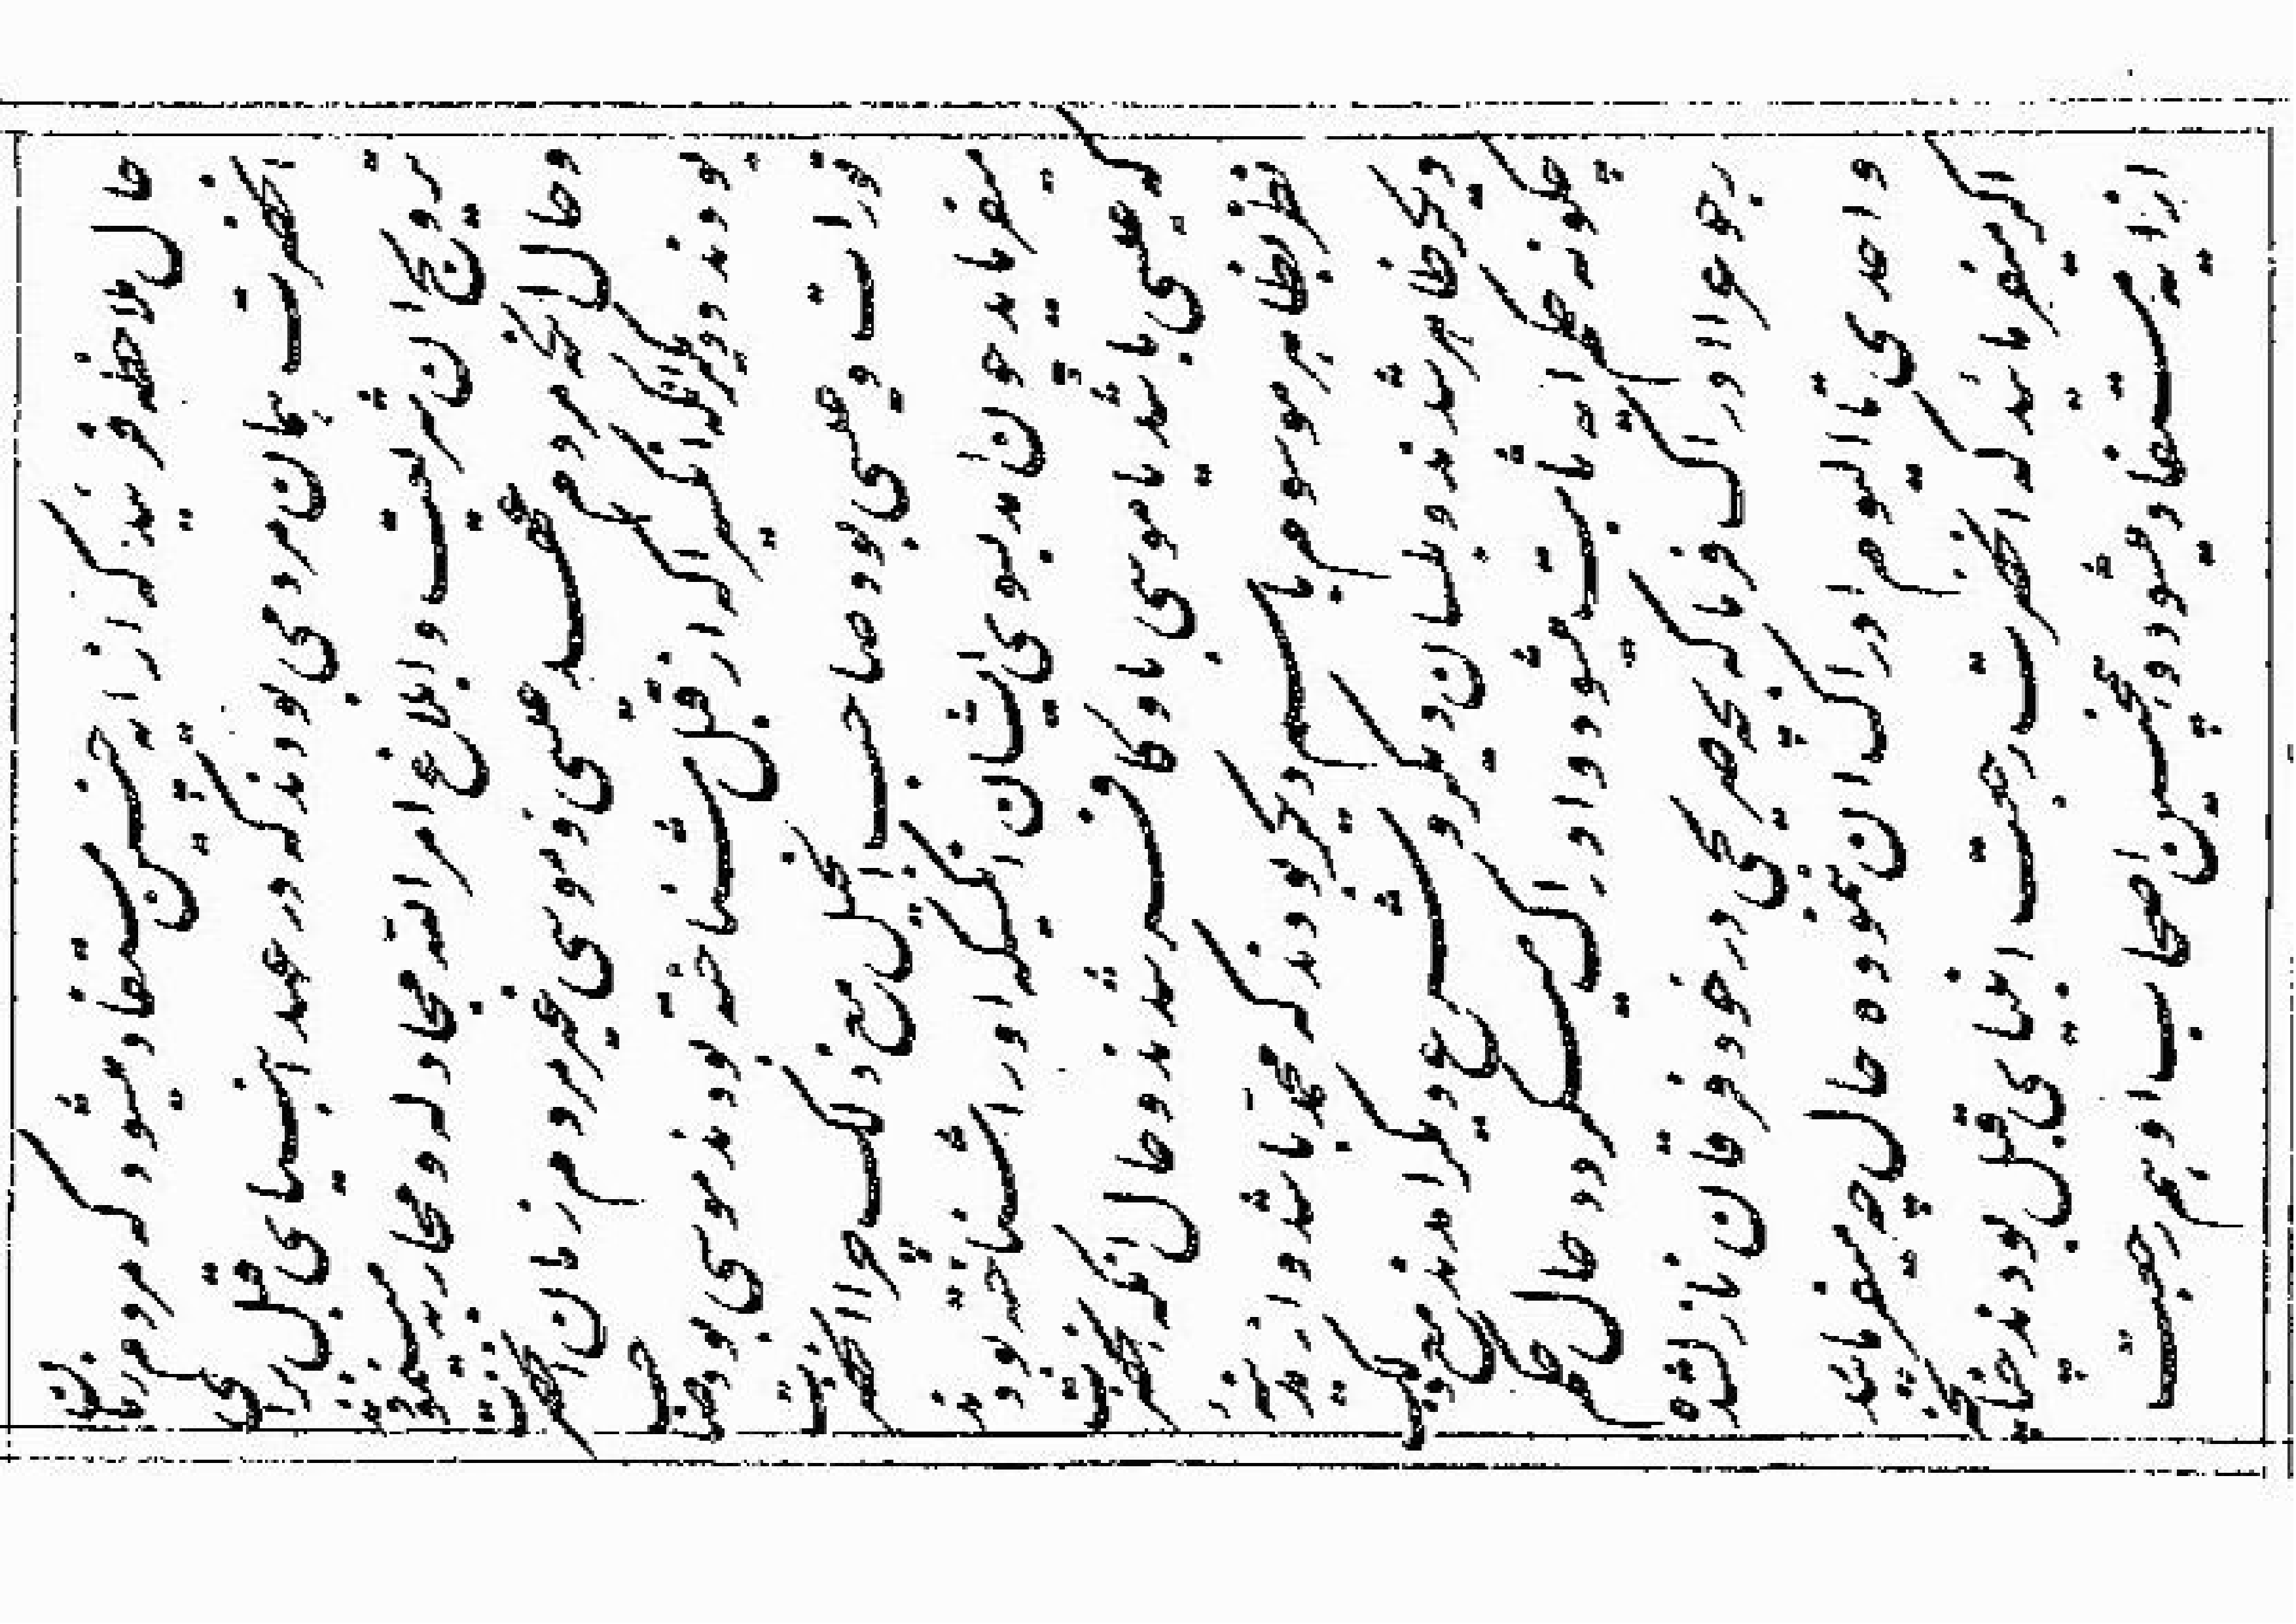 حال ملاحظه فرمائید که از این آیه چنین مستفاد میشود که مردم زمان
آنحضرت همان مردمی بودند که در عهد انبیای قبل برای
ترویج آن شریعت و ابلاغ امر الله مجادله و محاربه مینمودند
و حال آنکه مردم عهد عیسی و موسی غیر مردم زمان آنحضرت
بودند و دیگر آنکه آنکسی را که از قبل شناخته بودند موسی بود صاحب
تورات و عیسی بود صاحب انجیل مع ذلک چرا آنحضرت
میفرماید چون آمد بسوی ایشان آنکسیکه او را شناخته بودند
که عیسی باشد یا موسی باو کافر شدند و حال آنکه آنحضرت
نظر بظاهر موسوم باسم دیگر بودند که محمد باشد و از مدینه
دیگر ظاهر شدند و بلسان دیگر و شرع دیگر آمدند مع ذلک
چگونه حکم آیه ثابت میشود و ادراک میگردد حال حکم
رجوع را ادراک فرما که بچه صریحی در خود فرقان نازل شده
و احدی تا الیوم ادراک آن ننموده حال چه میفرمائید
اگر میفرمائید که آنحضرت رجعت انبیای قبل بودند چنانچه
از آیه مستفاد میشود و همچنین اصحاب او هم رجعت